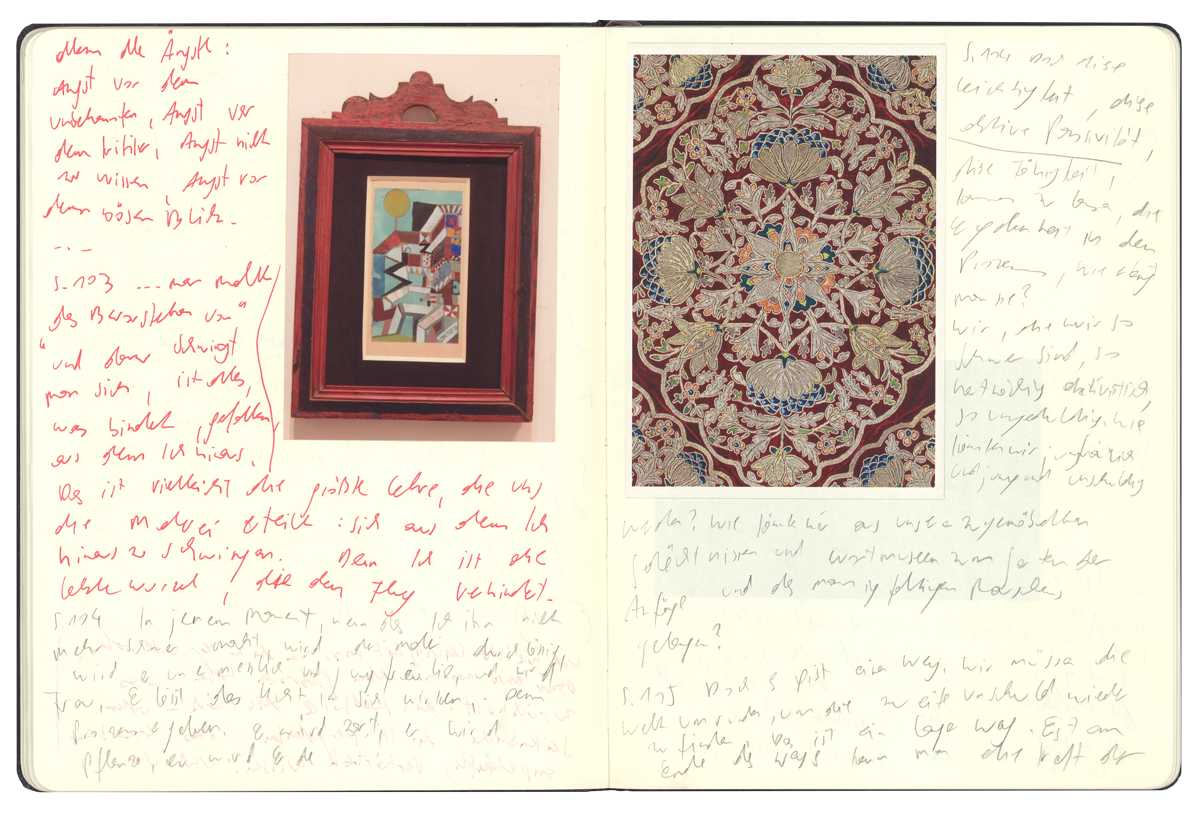 denn die Ängste:
Angst vor dem
unbekannten, Angst vor
dem Kritiker, Angst nicht
zu wissen, Angst vor
dem bösen Blick.
...
S.103 ... man malt
das Bevorstehen von"
"und dann schwingt
man sich, ist alles,
was bindet, gefallen,
aus dem Ich hinaus.
Das ist vielleicht die größte Lehre, die uns
die Malerei erteilt: sich aus dem Ich
hinaus zu schwingen. Denn Ich ist die
letzte Wurzel, die den Flug behindert.
S.104 In jenem Moment, wenn das Ich ihn nicht
mehr schwer macht, wird der Maler durchlässig
wird er unermesslich und jungfräulich und wird
Frau. Er lässt das Licht in sich wirken. Dem
Prozess ergeben. Er wird zart, er wird
Pflanze, er wird Erde
S.104 Doch diese
Leichtigkeit, diese
aktive Passivität,
diese Fähigkeit,
kommen zu lassen, die
Ergebenheit in den
Prozess, wie erlangt
man sie?
Wir, die wir so
schwer sind, so
hartnäckig aktivistisch,
so ungeduldig, wie
könnten wir jungfräulich
und jung und unschuldig
werden? Wie könnten wir aus unseren zugemöbelten
Gedächtnissen und Wortmuseen zum Garten der
Anfänge und des Raschelns
gelangen?
S.105 Doch es gibt einen Weg. Wir müssen die
Welt umrunden, um die zweite Unschuld wieder
zu finden. Das ist ein langer Weg. Erst am
Ende des Wegs kann man die Kraft der